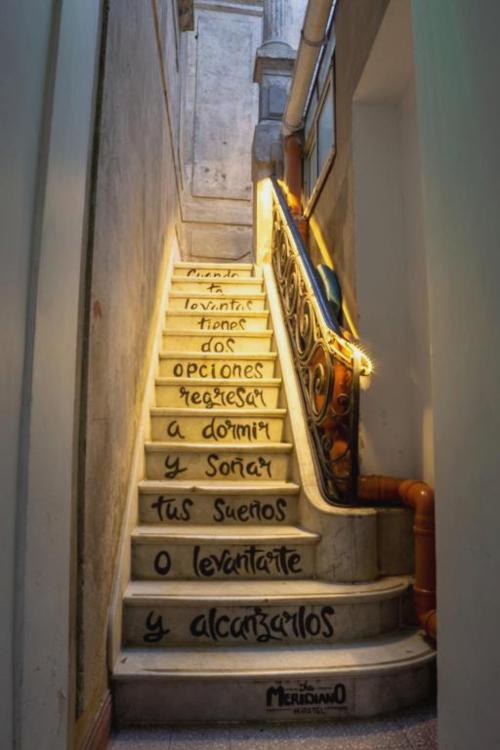 Cuando
te
levantas
tienes
dos
opciones
regresar
a dormir
y soñar
tus sueños
o levantarte
y alcanzarlos
the
MERIDIANO
HOSTEL